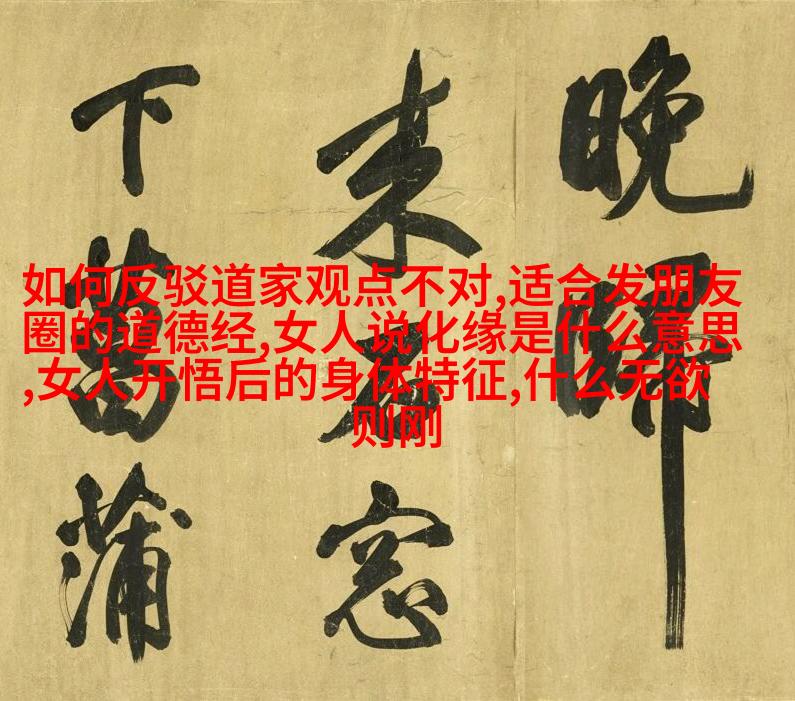 如何反驳道家观点不对,适合发朋友
圈的道德经,女人说化缘是什么意思
,女人开悟后的身体特征,什么无欲
则刚
晚
来窓
下蒲